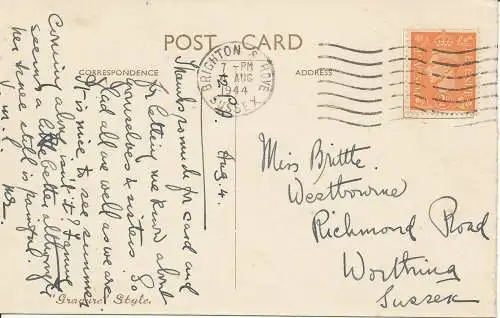 POST CARD
CORRESPONDENCE
ADDRESS
BRIGHTON & HOVE
7 - PM
AUG
1944
SUSSEX
Aug. 4.
Thanks so much for card and
for letting me know about
yourselves & sisters. So
glad all are well as we are.
It is nice to see summer
Coming along isn't it? Fannie
seems a little better although
her knee still is painful.
Miss Brittle.
Westbourne
Richmond Road
Worthing
Sussex
Gravure Style.